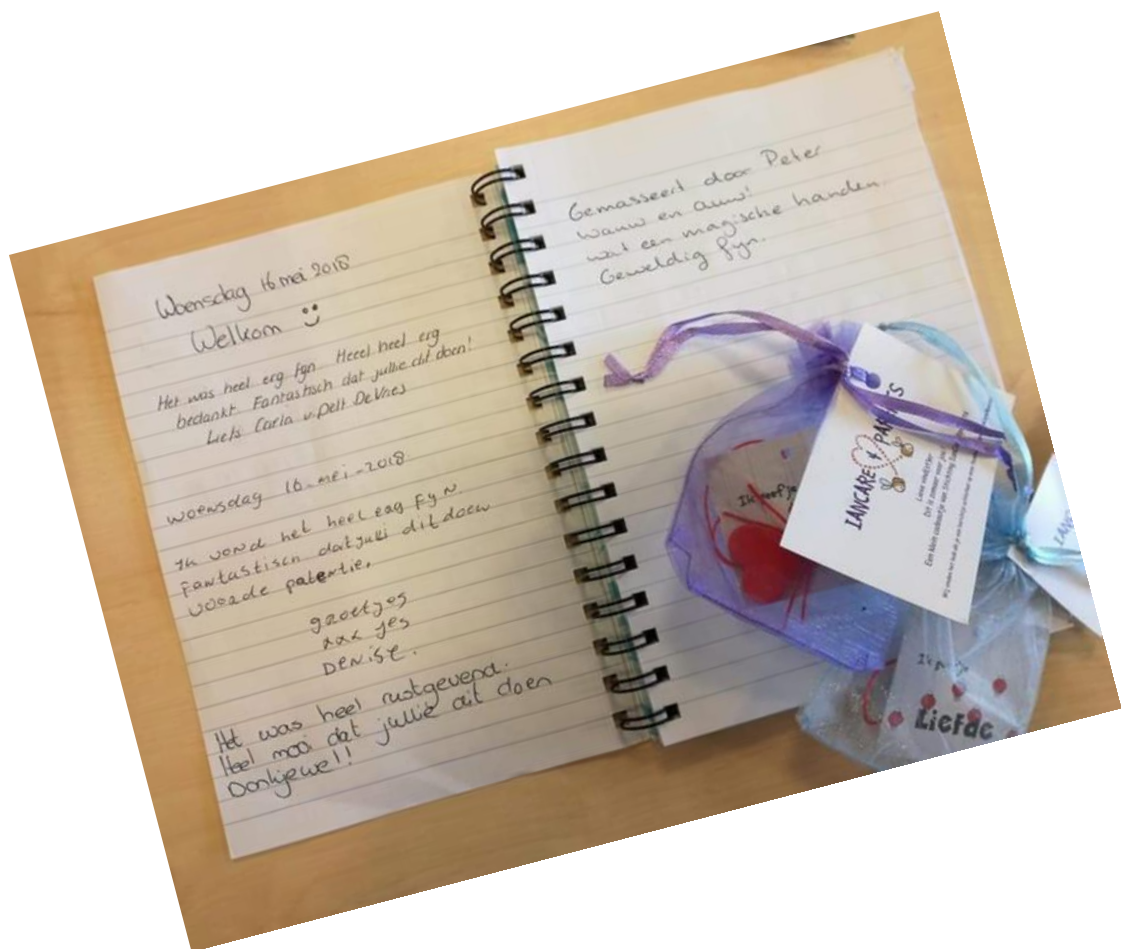 Woensdag 16 mei 2018
Welkom
Het was heel erg fijn Heeel heel erg
bedankt Fantastisch dat jullie dit doen!
Liefs Carla v. Pelt De Vries
woensdag 16-mei-2018
Ik vond het heel erg fyn.
Fantastisch dat juli dit doen
voorde patentie.
groetjes
xxx jes
Denise.
Het was heel rustgevend.
Heel mooi dat jullie dit doen
Dankjewel!
Gemasseert door Peter
wauw en auw!
wat een magische handen.
Geweldig fijn.
IANCARE & PARTNERS
Lieve
Dit is zomaar voor jou
Een klein cadeautje van Stichting
Ik geef je
Ik
Liefde